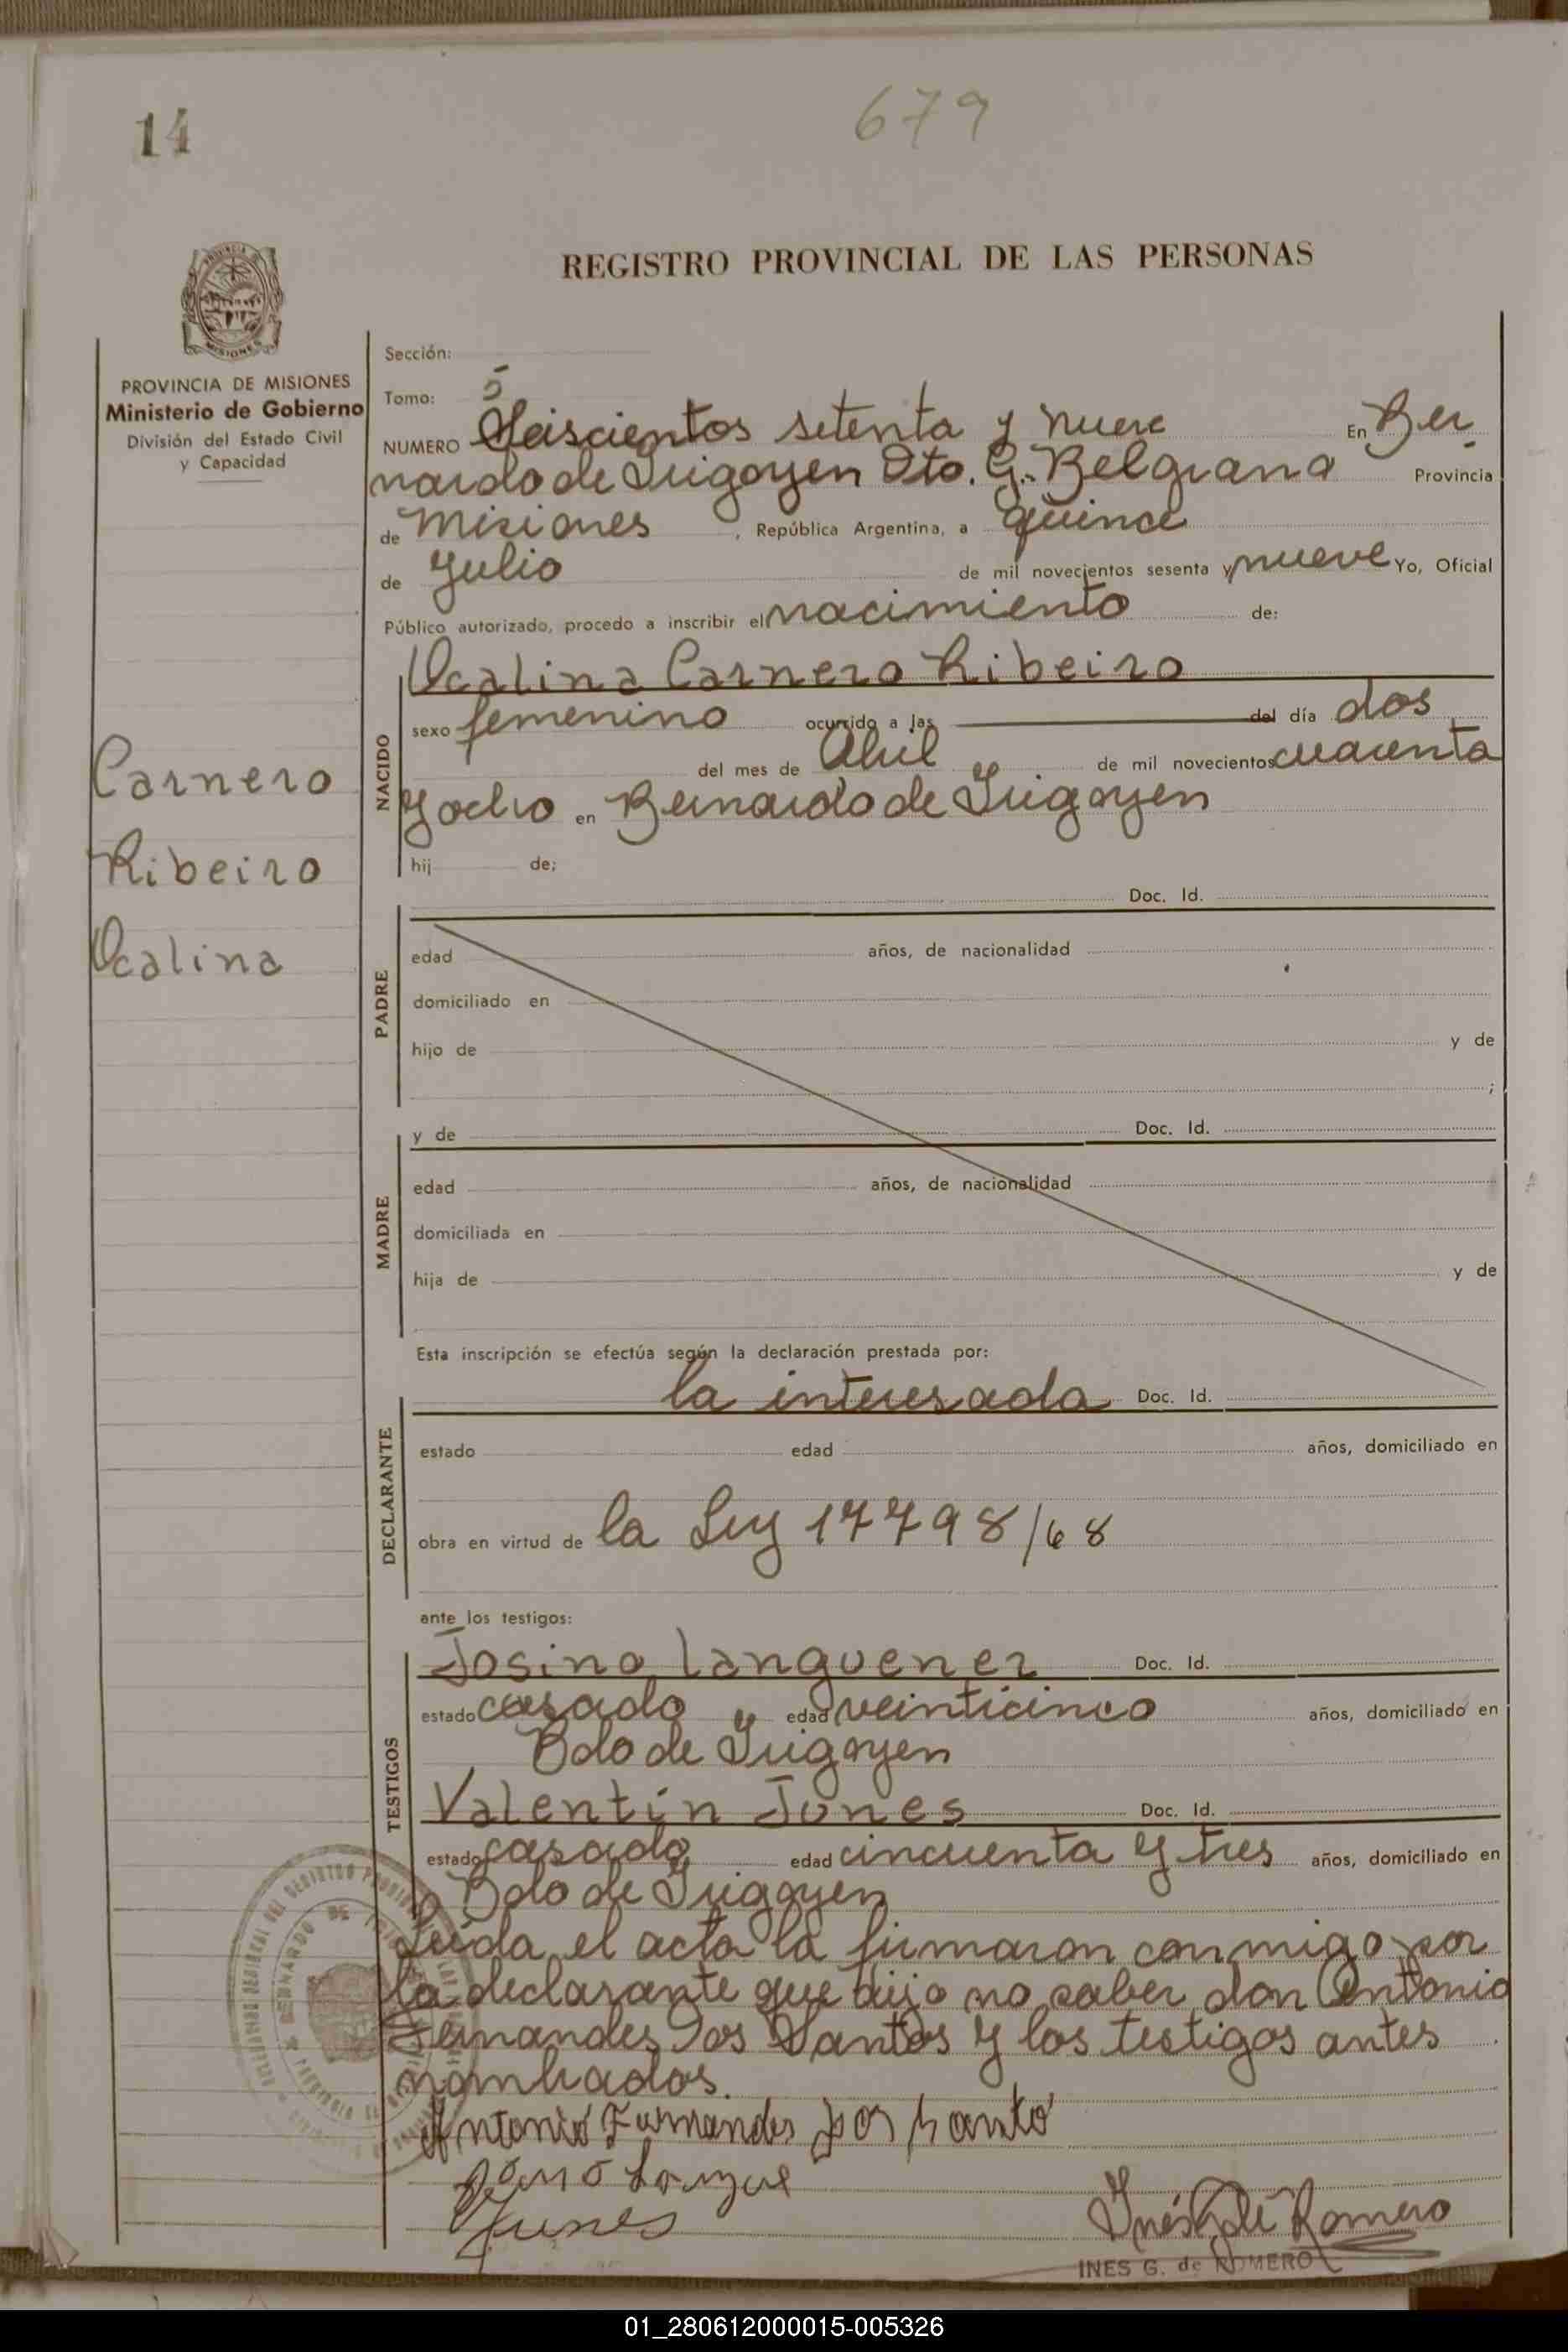 14
679
REGISTRO PROVINCIAL DE LAS PERSONAS
MISIONES
PROVINCIA DE MISIONES
Ministerio de Gobierno
División del Estado Civil
y Capacidad
Carnero
Ribeiro
Ocalina
Sección:
Tomo: 5
NUMERO Seiscientos setenta y nueve En Ber
nardo de Irigoyen Dto. G. Belgrano Provincia
de Misiones , República Argentina, a quince
de Julio de mil novecientos sesenta y nueve Yo, Oficial
Público autorizado, procedo a inscribir el nacimiento de:
NACIDO
Ocalina Carnero Ribeiro
sexo femenino ocurrido a las del día dos
del mes de Abril de mil novecientos cuarenta
y ocho en Bernardo de Irigoyen
hij de;
PADRE
Doc. Id.
edad años, de nacionalidad
domiciliado en
hijo de y de
;
MADRE
y de Doc. Id.
edad años, de nacionalidad
domiciliada en
hija de y de
Esta inscripción se efectúa según la declaración prestada por:
DECLARANTE
la interesada Doc. Id.
estado edad años, domiciliado en
obra en virtud de la Ley 17798/68
ante los testigos:
TESTIGOS
Josino Languener Doc. Id.
estado casado edad veinticinco años, domiciliado en
Bdo de Irigoyen
Valentín Junes Doc. Id.
estado casado edad cincuenta y tres años, domiciliado en
Bdo de Irigoyen
Leída el acta la firmaron conmigo por
la declarante que dijo no saber don Antonio
Fernandes Dos Santos y los testigos antes
nombrados.
Antonio Fernandes dos Santo
Junes
Inés G. de Romero
INES G. de ROMERO
01_280612000015-005326